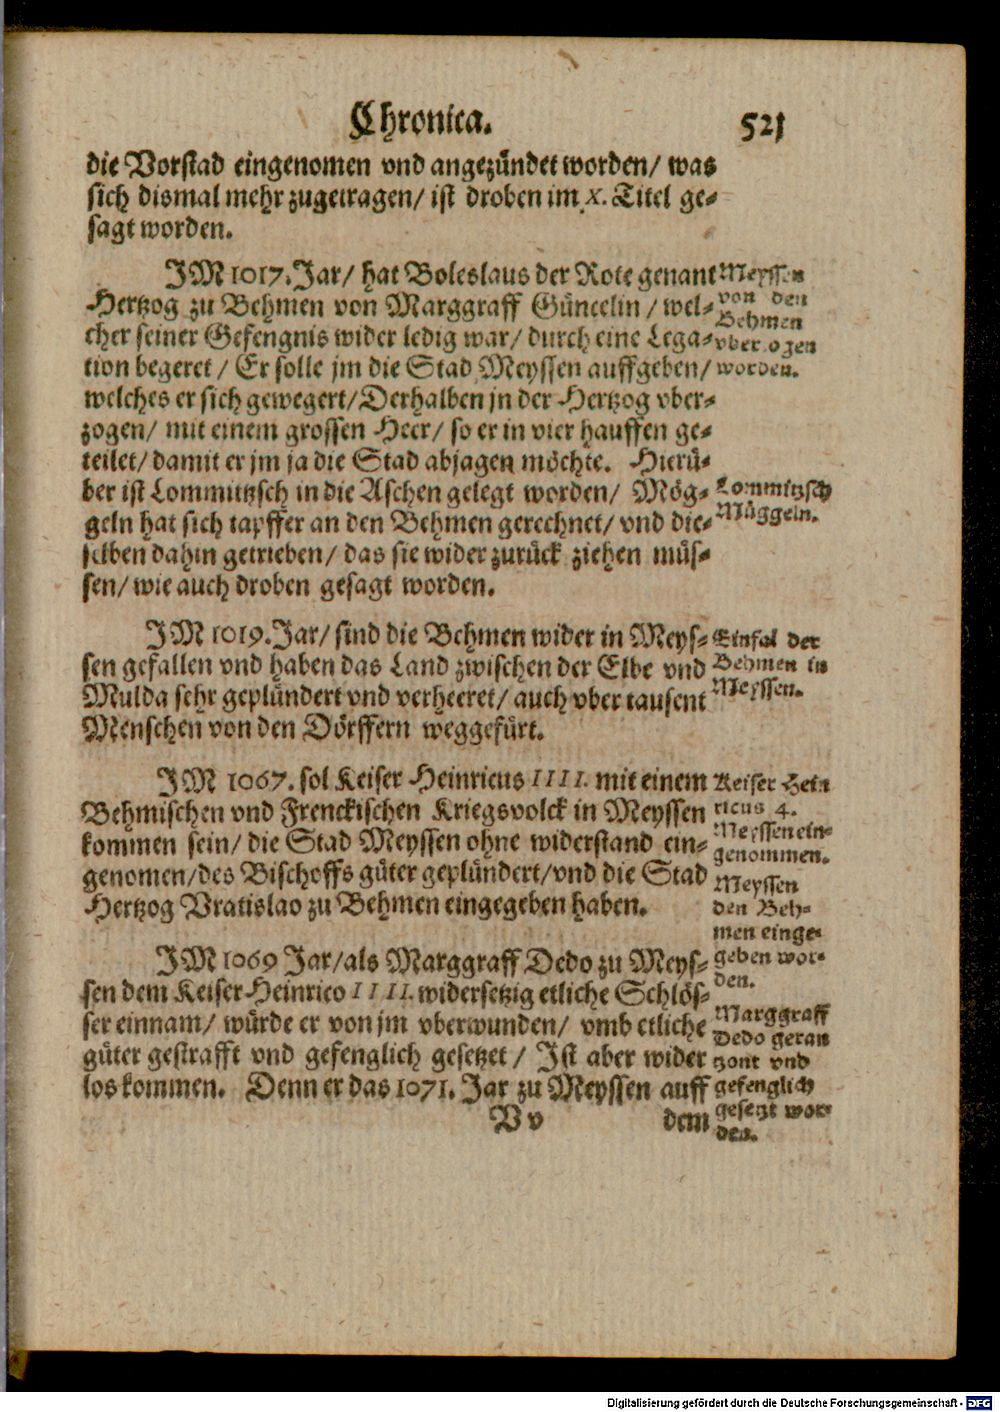 Chronica. 521
die Vorstad eingenomen vnd angezündet worden/ was
sich dismal mehr zugetragen/ ist droben im X. Titel ge-
sagt worden.
JM 1017. Jar/ hat Boleslaus der Rote genant
Hertzog zu Behmen von Marggraff Güncelin/ wel-
cher seiner Gefengnis wider ledig war/ durch eine Lega-
tion begeret/ Er solle jm die Stad Meyssen auffgeben/
welches er sich gewegert/ Derhalben jn der Hertzog vber-
zogen/ mit einem grossen Heer/ so er in vier hauffen ge-
teilet/ damit er jm ja die Stad abjagen möchte. Hierü-
ber ist Lommitzsch in die Aschen gelegt worden/ Mög-
geln hat sich tapffer an den Behmen gerechnet/ vnd die-
selben dahin getrieben/ das sie wider zurück ziehen müs-
sen/ wie auch droben gesagt worden.
Meyssen
von den
Behmen
vberzogen
worden.
Lommitzsch
Müggeln.
JM 1019. Jar/ sind die Behmen wider in Meys-
sen gefallen vnd haben das Land zwischen der Elbe vnd
Mulda sehr geplündert vnd verheeret/ auch vber tausent
Menschen von den Dörffern weggefürt.
Einfal der
Behmen in
Meyssen.
JM 1067. sol Keiser Heinricus IIII. mit einem
Behmischen vnd Frenckischen Kriegsvolck in Meyssen
kommen sein/ die Stad Meyssen ohne widerstand ein-
genomen/ des Bischoffs güter geplündert/ vnd die Stad
Hertzog Vratislao zu Behmen eingegeben haben.
Keiser Hein
ricus 4.
Meyssen ein-
genommen.
Meyssen
den Beh-
men einge-
geben wor-
den.
JM 1069 Jar/ als Marggraff Dedo zu Meys-
sen dem Keiser Heinrico IIII. widersetzig etliche Schlös-
ser einnam/ würde er von jm vberwunden/ vmb etliche
güter gestrafft vnd gefenglich gesetzet/ Ist aber wider
los kommen. Denn er das 1071. Jar zu Meyssen auff
Marggraff
Dedo geran
tzont vnd
gefenglich
gesetzt wor-
den.
Vv dem
Digitalisierung gefördert durch die Deutsche Forschungsgemeinschaft - DFG